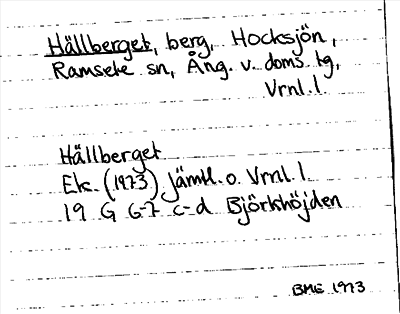 Hällberget, berg, Hocksjön,
Ramsele sn, Ång. v. doms tg,
Vrnl. l.
Hällberget
Ek. (1973) Jämtl. o. Vrnl. l.
19 G 6-7 c-d Björkhöjden
BME 1973